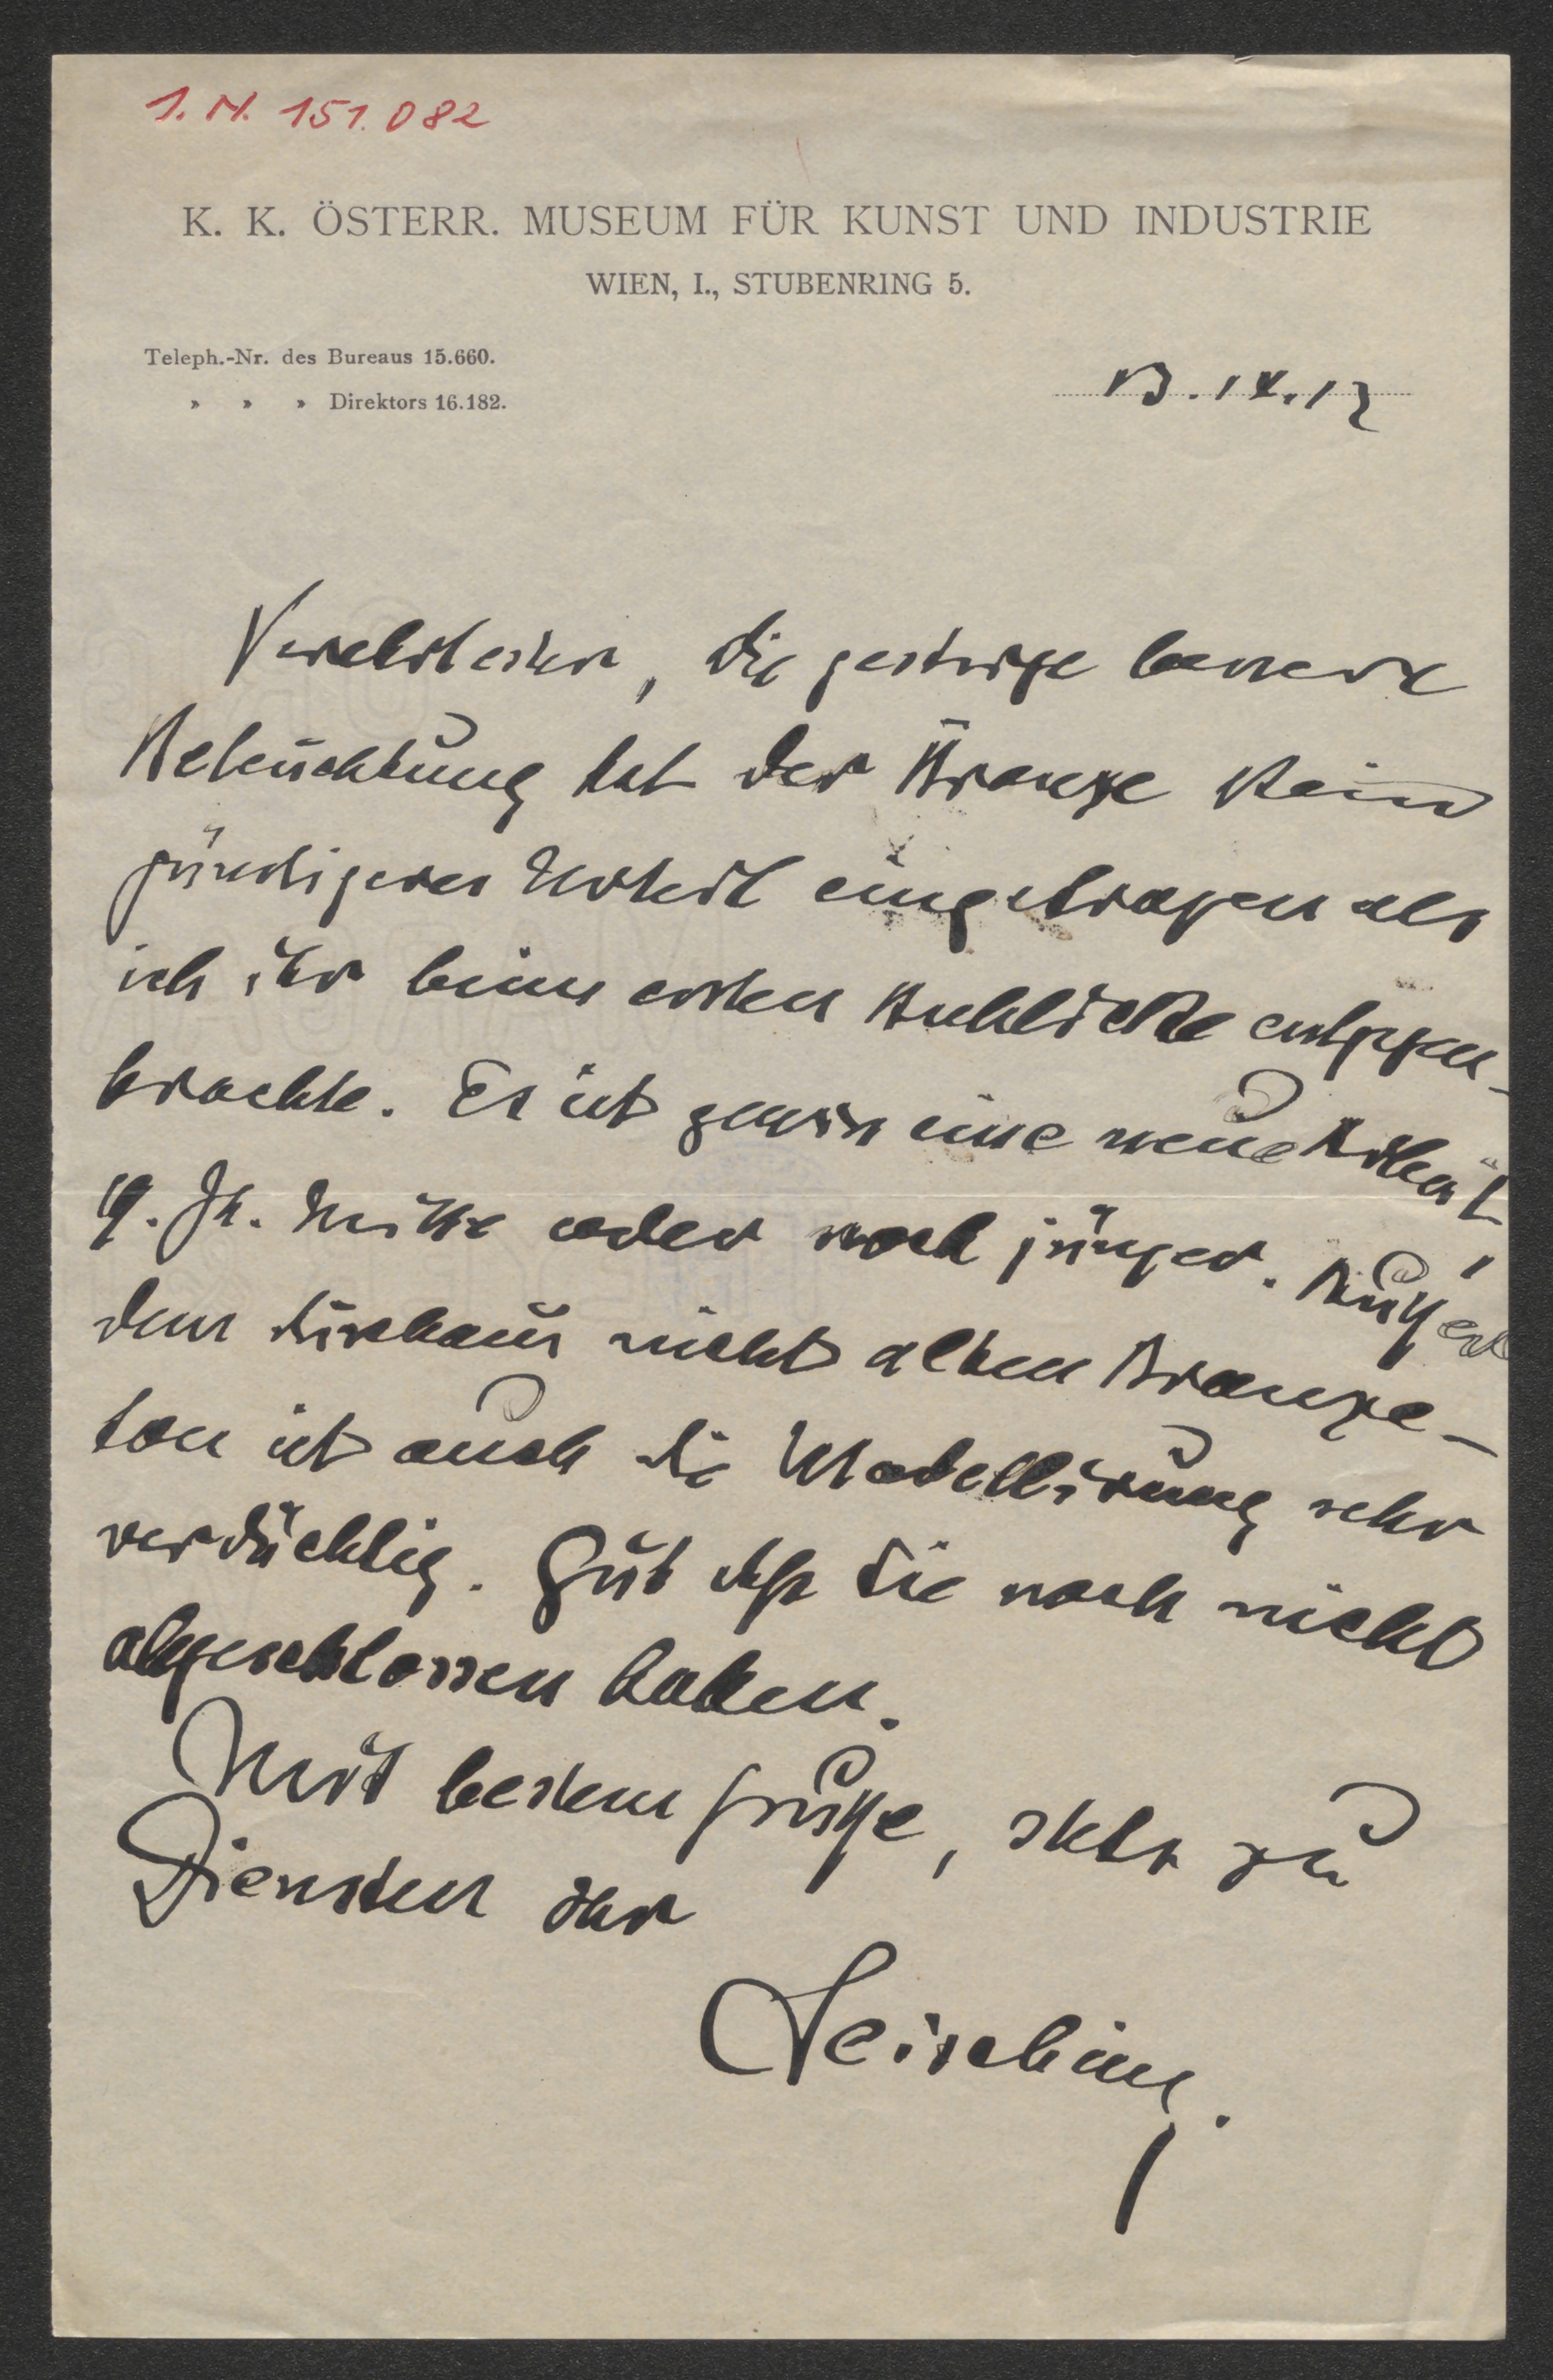 I. N. 151.082
K. K. ÖSTERR. MUSEUM FÜR KUNST UND INDUSTRIE
WIEN, I., STUBENRING 5.
Teleph.-Nr. des Bureaus 15.660.
» » » Direktors 16.182.
13. IX. 12
Verehrtester, die gestrige bessere
Beleuchtung hat der Bronze kein
günstigeres Urteil eingetragen als
ich ihr beim ersten Anblicke entgegen-
brachte. Es ist gewiss eine neue Arbeit,
19. Jh. Mitte oder noch jünger. Außer
dem durchaus nicht alten Bronze-
ton ist auch die Modellirung sehr
verdächtig. Gut daß Sie noch nicht
abgeschlossen haben.
Mit bestem Gruße, stets zu
Diensten Ihr
Leisching.